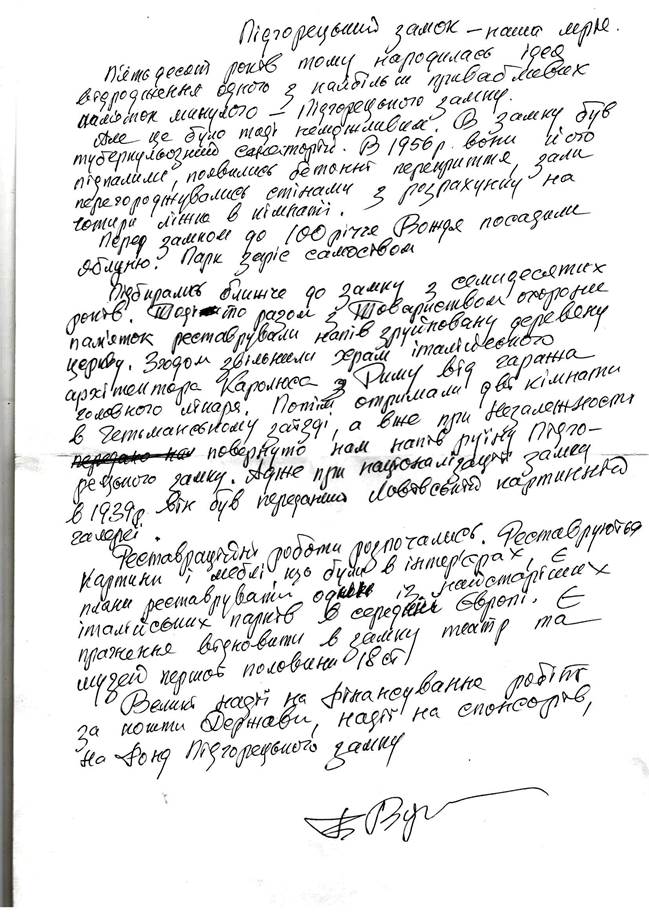 Підгорецький замок – наша мрія.
П'ятьдесят років тому народилась ідея
відродження одного з найбільш привабливих
пам'яток минулого – Підгорецького замку.
Але це було тоді неможливим. В замку був
туберкульозний санаторій. В 1956р. вони його
підпалили, появились бетонні перекриття, зали
перегороджувались стінами з розрахунку на
чотири ліжка в кімнаті.
Перед замком до 100 річчя Вождя посадили
яблуню. Парк заріс самосівом
Підбирались ближче до замку з семидесятих
років. разом з Товариством охорони
пам'яток реставрували напів зруйновану деревяну
церкву. Згодом звільнили храм італійського
архітектора Каролюса з Риму від гаража
головного лікаря. Потім отримали дві кімнати
в Гетьманському заїзді, а вже при Незалежності
повернуто нам напів руїну Підго-
рецького замку. Адже при націоналізації замку
в 1939р. він був переданий Львівській картинній
галереї.
Реставраційні роботи розпочались. Реставруються
картини і меблі що були в інтер'єрах, є
плани реставрувати один із найстаріших
італійських парків в середній Європі. Є
враження відновити в замку театр та
музей першої половини 18 ст.
Великі надії на фінансування робіт
за кошти Держави, надії на спонсорів,
на Фонд Підгорецького замку